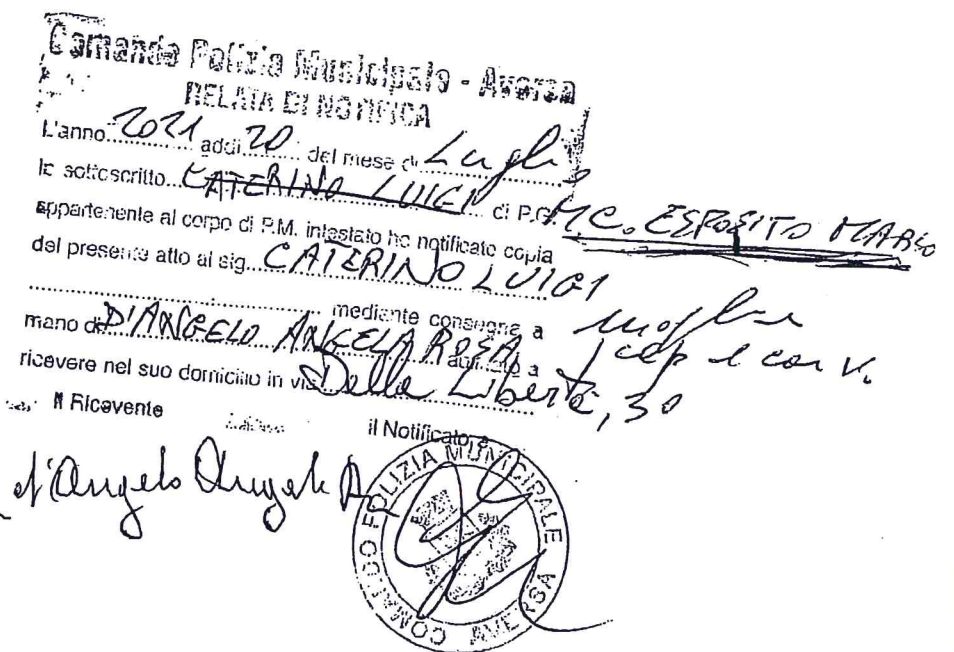 Comando Polizia Municipale - Aversa
RELATA DI NOTIFICA
L'anno 2021 addì 20 del mese di Luglio
Io sottoscritto CATERINO LUIGI di P.G. M.C. ESPOSITO MARIO
appartenente al corpo di P.M. intestato ho notificato copia
del presente atto al sig. CATERINO LUIGI
mediante consegna a moglie
mano di D'ANGELO ANGELA ROSA a cap e conv.
ricevere nel suo domicilio in via Della Libertà, 30
Il Ricevente
il Notificatore
d'Angelo Angela
COMANDO POLIZIA MUNICIPALE
AVERSA